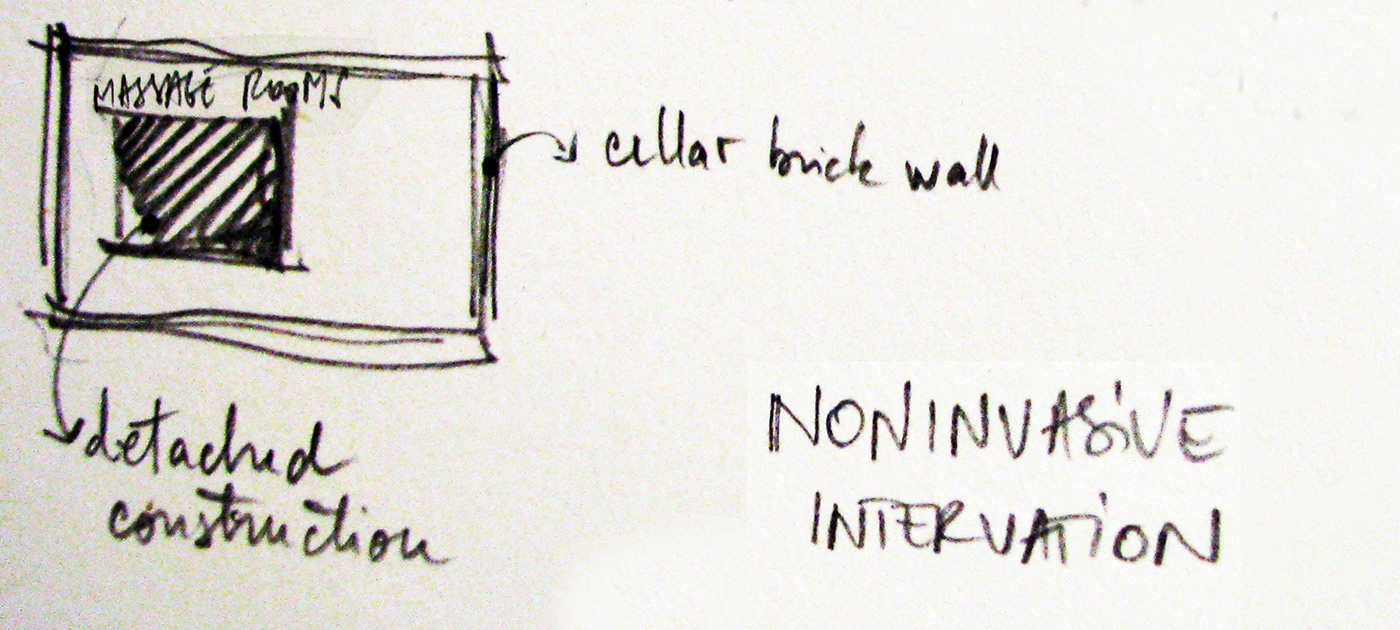 MASSAGE ROOMS
cellar brick wall
detached
construction
NONINVASIVE
INTERVATION